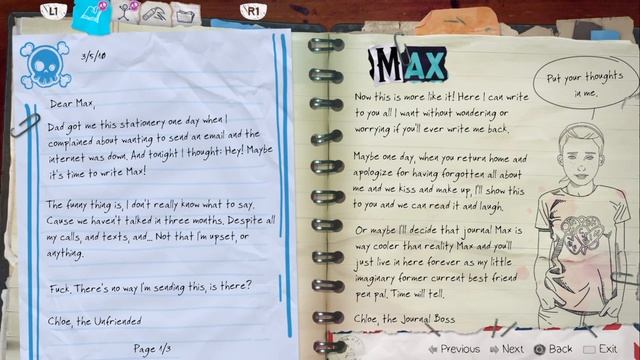 L1
R1
3/5/10
Dear Max,
Dad got me this stationery one day when I
complained about wanting to send an email and the
internet was down. And tonight I thought: Hey! Maybe
it's time to write Max!
The funny thing is, I don't really know what to say.
Cause we haven't talked in three months. Despite all
my calls, and texts, and... Not that I'm upset, or
anything.
Fuck. There's no way I'm sending this, is there?
Chloe, the Unfriended
Page 1/3
MAX
Now this is more like it! Here I can write
to you all I want without wondering or
worrying if you'll ever write me back.
Maybe one day, when you return home and
apologize for having forgotten all about
me and we kiss and make up, I'll show this
to you and we can read it and laugh.
Or maybe I'll decide that journal Max is
way cooler than reality Max and you'll
just live in here forever as my little
imaginary former current best friend
pen pal. Time will tell.
Chloe, the Journal Boss
Put your thoughts
in me.
Previous
Next
Back
Exit